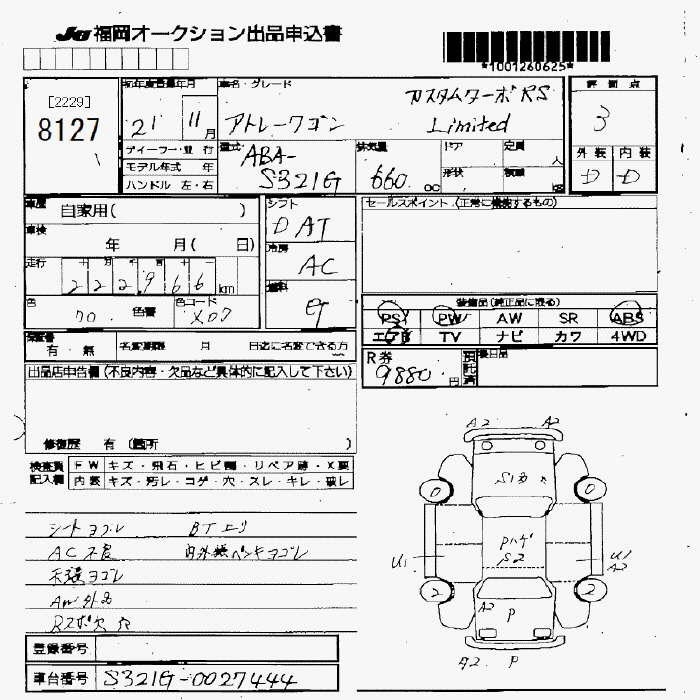 JU 福岡オークション出品申込書
*1001260625*
[2229]
8127
初年度登録年月
21 11月
車名・グレード
アトレーワゴン
カスタムターボRS
Limited
評価点
3
外装 内装
D D
ディーラー・並行
モデル年式 年
ハンドル 左・右
型式
ABA-
S321G
排気量
660 CC
ドア
形状
定員
人
積載
車歴
自家用( )
車検
年 月( 日)
走行
十 万 千 百 十 一
2 2 2 9 6 6 km
色
色替
色コード
X07
シフト
D AT
冷房
AC
燃料
セールスポイント (正常に機能するもの)
装備品 (純正品に限る)
PS PW AW SR ABS
エアB TV ナビ カワ 4WD
保証書
有・無
名変期限 月 日迄に名変できる方
R券
9880 円
預託済
後日品
出品店申告欄 (不良内容・欠品など具体的に記入して下さい)
修復歴 有 (箇所 )
検査員記入欄
FW キズ・飛石・ヒビ割・リペア跡・X要
内装 キズ・汚レ・コゲ・穴・スレ・キレ・破レ
シートヨゴレ BTエリ
AC不良 内外装ペンキヨゴレ
天張ヨゴレ
AW外品
Rスポ欠 穴
A2 A2
0 0
PハゲS2
U1 U1
A2
2 2
A2 P
A2 P
登録番号
車台番号 S321G-0027444